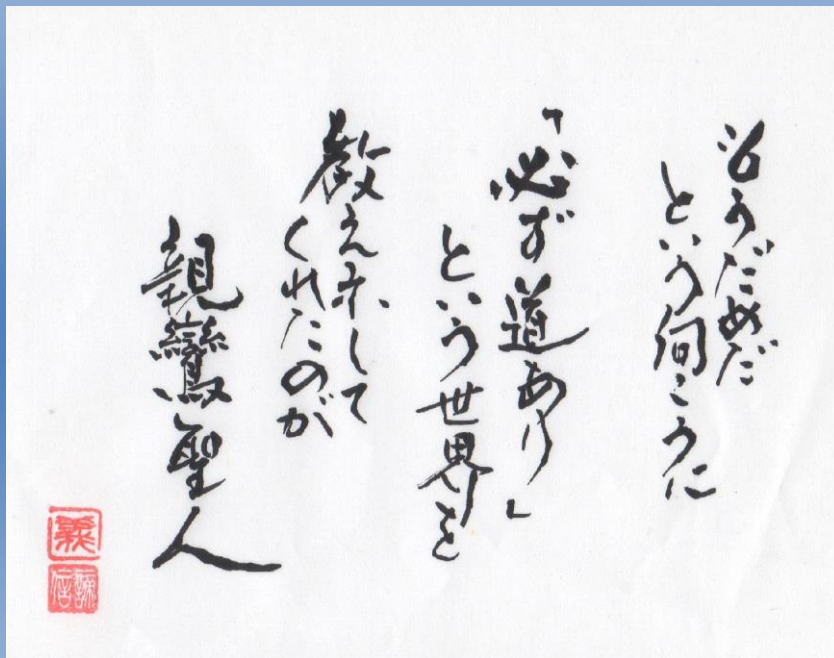 もうだめだ
という向こうに
「必ず道あり」
という世界を
教え示して
くれたのが
親鸞聖人
義